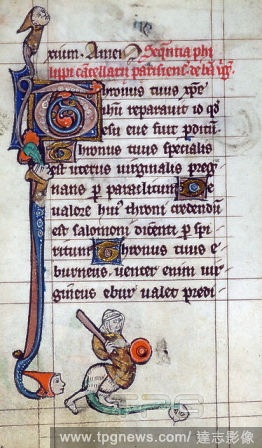 xium. Amen Sequentia phi
lippi cancellarii parisiens' de bā v̄ḡ.
Thronus tuus xp̄e
ih̄u reparavit
esu eve fuit
Thronus tuus specialis
est uterus virginalis preg
nans p̄ paraclitum
valore hui' throni credendū
est salomoni dicenti p̄ sp̄i
ritum Thronus tuus e
burneus, venter enim vir
gineus ebur valet predi
TPG
www.tpgnews.com/ 達志影像